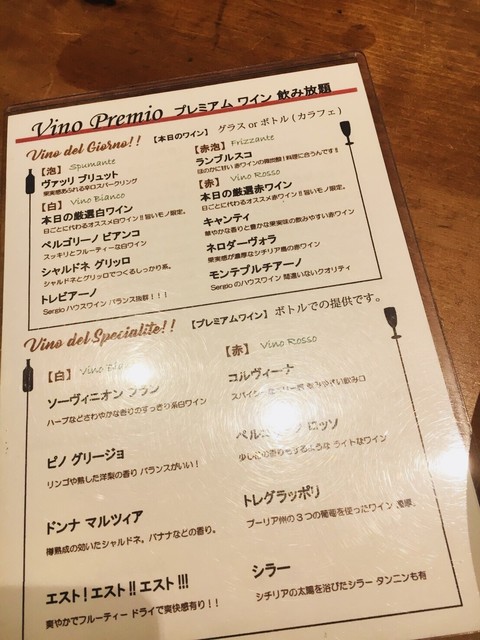 Vino Premio プレミアム ワイン 飲み放題
Vino del Giorno!! 【本日のワイン】 グラス or ボトル (カラフェ)
【泡】 Spumante
ヴァッリ ブリュット
果実感あふれる辛口スパークリング
【白】 Vino Bianco
本日の厳選白ワイン
日ごとに代わるオススメ白ワイン!!旨いモノ限定。
ペルゴリーノ ビアンコ
スッキリとフルーティーな白ワイン
シャルドネ グリッロ
シャルドネとグリッロでつくるしっかり系。
トレビアーノ
Sergio ハウスワイン バランス抜群!!!
【赤泡】 Frizzante
ランブルスコ
ほのかに甘い 赤ワインの微炭酸!料理に合うんです!!
【赤】 Vino Rosso
本日の厳選赤ワイン
日ごとに代わるオススメ赤ワイン!!旨いモノ限定。
キャンティ
華やかな香りと豊かな果実味の飲みやすい赤ワイン
ネロダーヴォラ
果実感が濃厚なシチリア島の赤ワイン
モンテプルチアーノ
Sergio のハウスワイン 間違いないクオリティ
Vino del Specialite!! 【プレミアムワイン】 ボトルでの提供です。
【白】 Vino
ソーヴィニオン ブラン
ハーブなどさわやかな香りのすっきり系白ワイン
ピノ グリージョ
リンゴや熟した洋梨の香り バランスがいい!
ドンナ マルツィア
樽熟成の効いたシャルドネ。バナナなどの香り。
エスト!エスト!!エスト!!!
爽やかでフルーティー ドライで爽快感有り!!
【赤】 Vino Rosso
コルヴィーナ
飲みやすい飲み口
ロッソ
ライトなワイン
トレグラッポリ
プーリア州の3つの葡萄を使ったワイン
シラー
シチリアの太陽を浴びたシラー タンニンも有